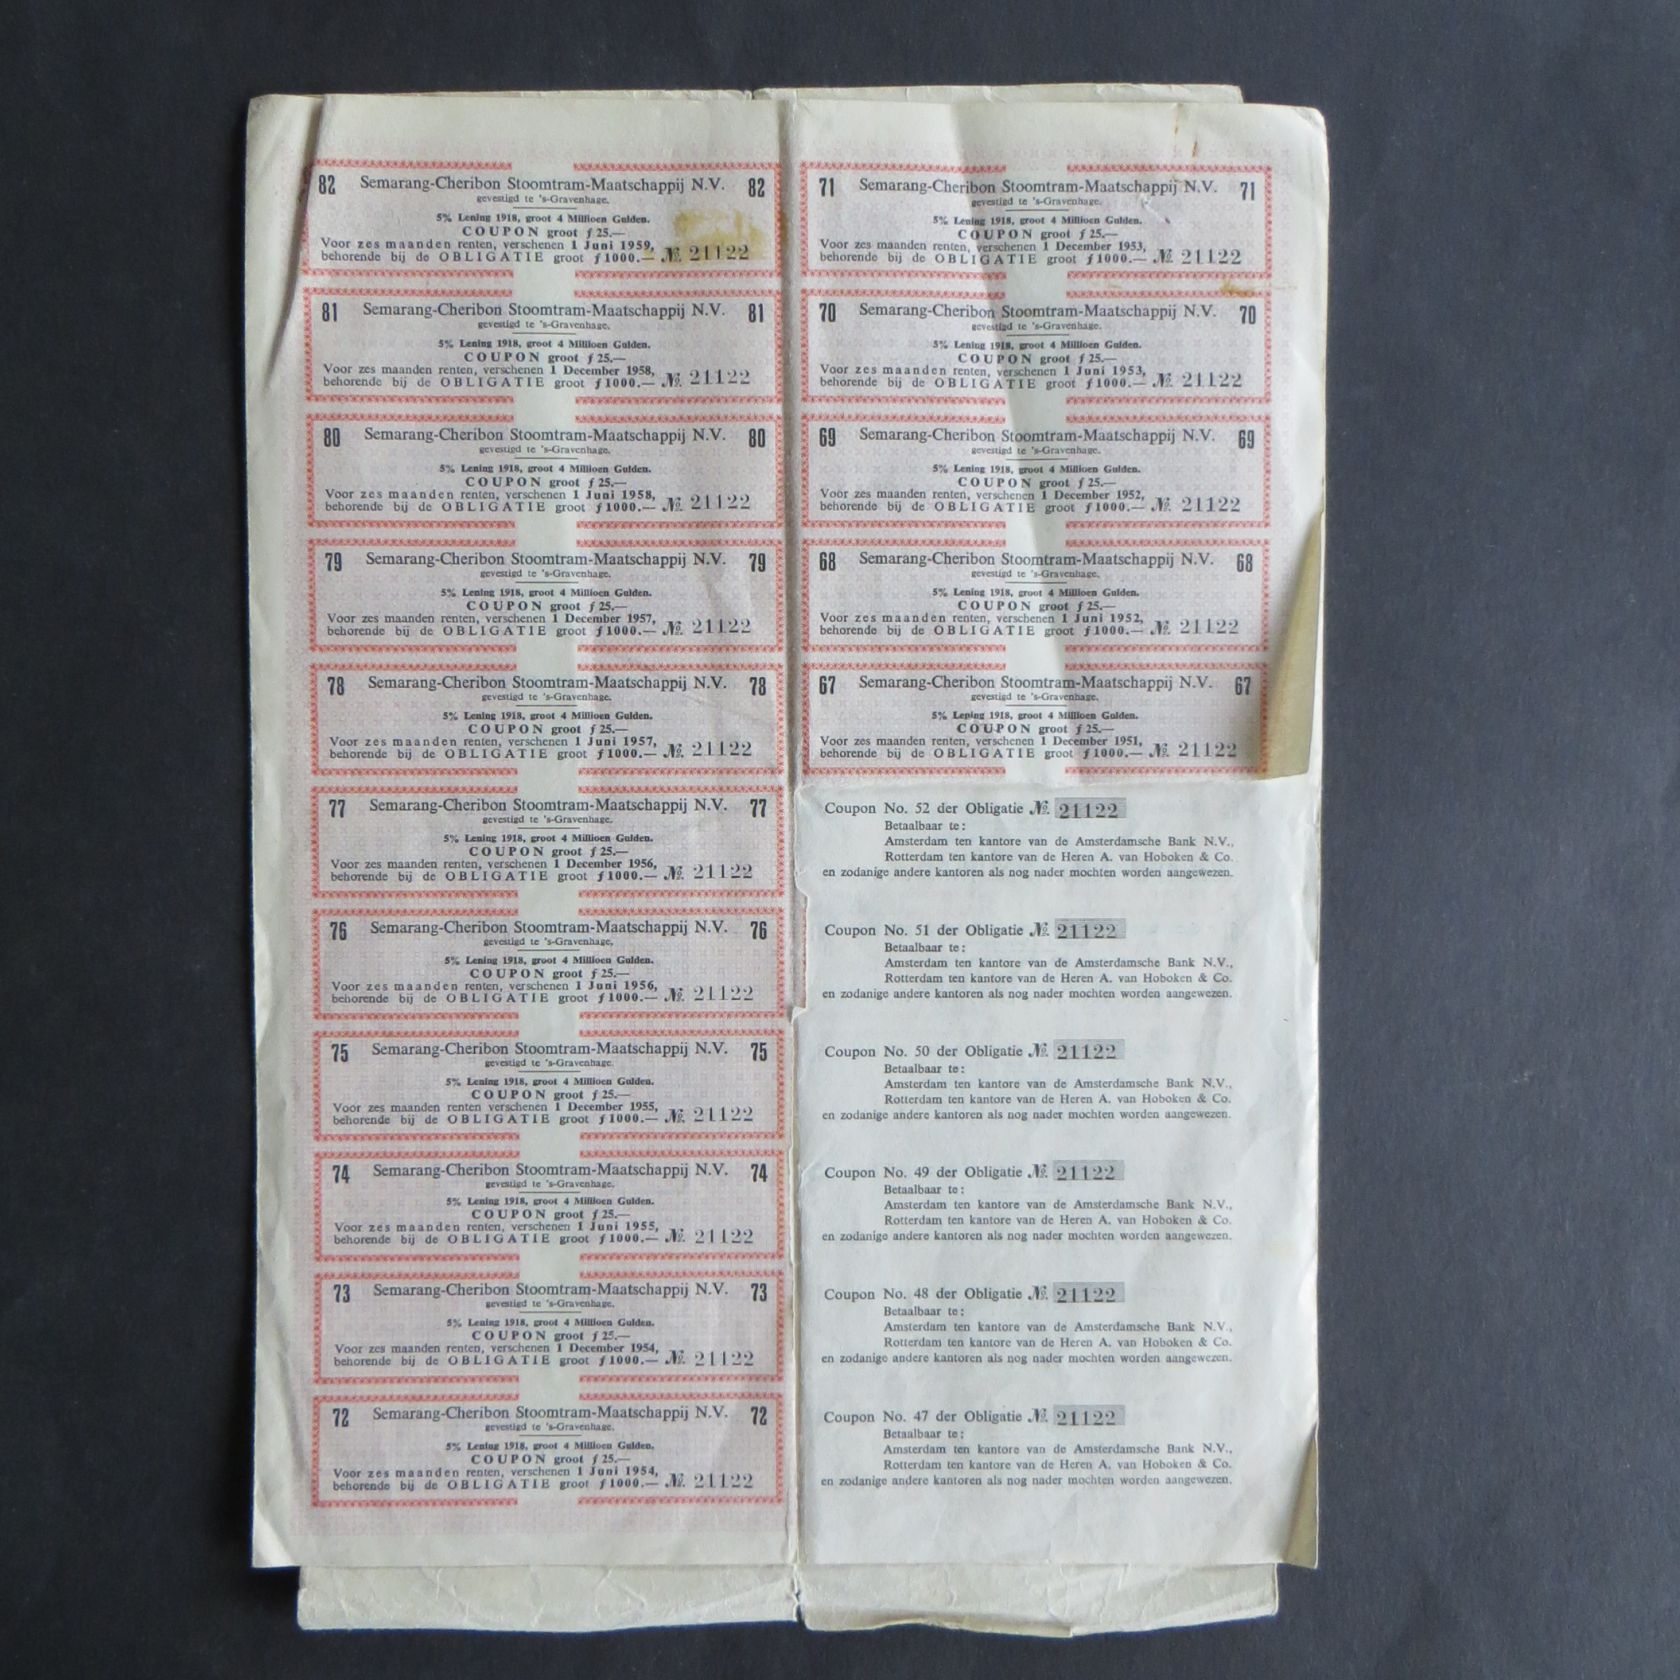 82 Semarang-Cheribon Stoomtram-Maatschappij N.V. 82
gevestigd te 's-Gravenhage.
5% Lening 1918, groot 4 Millioen Gulden.
COUPON groot ƒ 25.—
Voor zes maanden renten, verschenen 1 Juni 1959,
behorende bij de OBLIGATIE groot ƒ1000.— №. 21122
81 Semarang-Cheribon Stoomtram-Maatschappij N.V. 81
gevestigd te 's-Gravenhage.
5% Lening 1918, groot 4 Millioen Gulden.
COUPON groot ƒ 25.—
Voor zes maanden renten, verschenen 1 December 1958,
behorende bij de OBLIGATIE groot ƒ1000.— №. 21122
80 Semarang-Cheribon Stoomtram-Maatschappij N.V. 80
gevestigd te 's-Gravenhage.
5% Lening 1918, groot 4 Millioen Gulden.
COUPON groot ƒ 25.—
Voor zes maanden renten, verschenen 1 Juni 1958,
behorende bij de OBLIGATIE groot ƒ1000.— №. 21122
79 Semarang-Cheribon Stoomtram-Maatschappij N.V. 79
gevestigd te 's-Gravenhage.
5% Lening 1918, groot 4 Millioen Gulden.
COUPON groot ƒ 25.—
Voor zes maanden renten, verschenen 1 December 1957,
behorende bij de OBLIGATIE groot ƒ1000.— №. 21122
78 Semarang-Cheribon Stoomtram-Maatschappij N.V. 78
gevestigd te 's-Gravenhage.
5% Lening 1918, groot 4 Millioen Gulden.
COUPON groot ƒ 25.—
Voor zes maanden renten, verschenen 1 Juni 1957,
behorende bij de OBLIGATIE groot ƒ1000.— №. 21122
77 Semarang-Cheribon Stoomtram-Maatschappij N.V. 77
gevestigd te 's-Gravenhage.
5% Lening 1918, groot 4 Millioen Gulden.
COUPON groot ƒ 25.—
Voor zes maanden renten, verschenen 1 December 1956,
behorende bij de OBLIGATIE groot ƒ1000.— №. 21122
76 Semarang-Cheribon Stoomtram-Maatschappij N.V. 76
gevestigd te 's-Gravenhage.
5% Lening 1918, groot 4 Millioen Gulden.
COUPON groot ƒ 25.—
Voor zes maanden renten, verschenen 1 Juni 1956,
behorende bij de OBLIGATIE groot ƒ1000.— №. 21122
75 Semarang-Cheribon Stoomtram-Maatschappij N.V. 75
gevestigd te 's-Gravenhage.
5% Lening 1918, groot 4 Millioen Gulden.
COUPON groot ƒ 25.—
Voor zes maanden renten verschenen 1 December 1955,
behorende bij de OBLIGATIE groot ƒ1000.— №. 21122
74 Semarang-Cheribon Stoomtram-Maatschappij N.V. 74
gevestigd te 's-Gravenhage.
5% Lening 1918, groot 4 Millioen Gulden.
COUPON groot ƒ 25.—
Voor zes maanden renten, verschenen 1 Juni 1955,
behorende bij de OBLIGATIE groot ƒ1000.— №. 21122
73 Semarang-Cheribon Stoomtram-Maatschappij N.V. 73
gevestigd te 's-Gravenhage.
5% Lening 1918, groot 4 Millioen Gulden.
COUPON groot ƒ 25.—
Voor zes maanden renten, verschenen 1 December 1954,
behorende bij de OBLIGATIE groot ƒ1000.— №. 21122
72 Semarang-Cheribon Stoomtram-Maatschappij N.V. 72
gevestigd te 's-Gravenhage.
5% Lening 1918, groot 4 Millioen Gulden.
COUPON groot ƒ 25.—
Voor zes maanden renten, verschenen 1 Juni 1954,
behorende bij de OBLIGATIE groot ƒ1000.— №. 21122
71 Semarang-Cheribon Stoomtram-Maatschappij N.V. 71
gevestigd te 's-Gravenhage.
5% Lening 1918, groot 4 Millioen Gulden.
COUPON groot ƒ 25.—
Voor zes maanden renten, verschenen 1 December 1953,
behorende bij de OBLIGATIE groot ƒ1000.— №. 21122
70 Semarang-Cheribon Stoomtram-Maatschappij N.V. 70
gevestigd te 's-Gravenhage.
5% Lening 1918, groot 4 Millioen Gulden.
COUPON groot ƒ 25.—
Voor zes maanden renten, verschenen 1 Juni 1953,
behorende bij de OBLIGATIE groot ƒ1000.— №. 21122
69 Semarang-Cheribon Stoomtram-Maatschappij N.V. 69
gevestigd te 's-Gravenhage.
5% Lening 1918, groot 4 Millioen Gulden.
COUPON groot ƒ 25.—
Voor zes maanden renten, verschenen 1 December 1952,
behorende bij de OBLIGATIE groot ƒ1000.— №. 21122
68 Semarang-Cheribon Stoomtram-Maatschappij N.V. 68
gevestigd te 's-Gravenhage.
5% Lening 1918, groot 4 Millioen Gulden.
COUPON groot ƒ 25.—
Voor zes maanden renten, verschenen 1 Juni 1952,
behorende bij de OBLIGATIE groot ƒ1000.— №. 21122
67 Semarang-Cheribon Stoomtram-Maatschappij N.V. 67
gevestigd te 's-Gravenhage.
5% Lening 1918, groot 4 Millioen Gulden.
COUPON groot ƒ 25.—
Voor zes maanden renten, verschenen 1 December 1951,
behorende bij de OBLIGATIE groot ƒ1000.— №. 21122
Coupon No. 52 der Obligatie №. 21122
Betaalbaar te:
Amsterdam ten kantore van de Amsterdamsche Bank N.V.,
Rotterdam ten kantore van de Heren A. van Hoboken & Co.
en zodanige andere kantoren als nog nader mochten worden aangewezen.
Coupon No. 51 der Obligatie №. 21122
Betaalbaar te:
Amsterdam ten kantore van de Amsterdamsche Bank N.V.,
Rotterdam ten kantore van de Heren A. van Hoboken & Co.
en zodanige andere kantoren als nog nader mochten worden aangewezen.
Coupon No. 50 der Obligatie №. 21122
Betaalbaar te:
Amsterdam ten kantore van de Amsterdamsche Bank N.V.,
Rotterdam ten kantore van de Heren A. van Hoboken & Co.
en zodanige andere kantoren als nog nader mochten worden aangewezen.
Coupon No. 49 der Obligatie №. 21122
Betaalbaar te:
Amsterdam ten kantore van de Amsterdamsche Bank N.V.,
Rotterdam ten kantore van de Heren A. van Hoboken & Co.
en zodanige andere kantoren als nog nader mochten worden aangewezen.
Coupon No. 48 der Obligatie №. 21122
Betaalbaar te:
Amsterdam ten kantore van de Amsterdamsche Bank N.V.,
Rotterdam ten kantore van de Heren A. van Hoboken & Co.
en zodanige andere kantoren als nog nader mochten worden aangewezen.
Coupon No. 47 der Obligatie №. 21122
Betaalbaar te:
Amsterdam ten kantore van de Amsterdamsche Bank N.V.,
Rotterdam ten kantore van de Heren A. van Hoboken & Co.
en zodanige andere kantoren als nog nader mochten worden aangewezen.